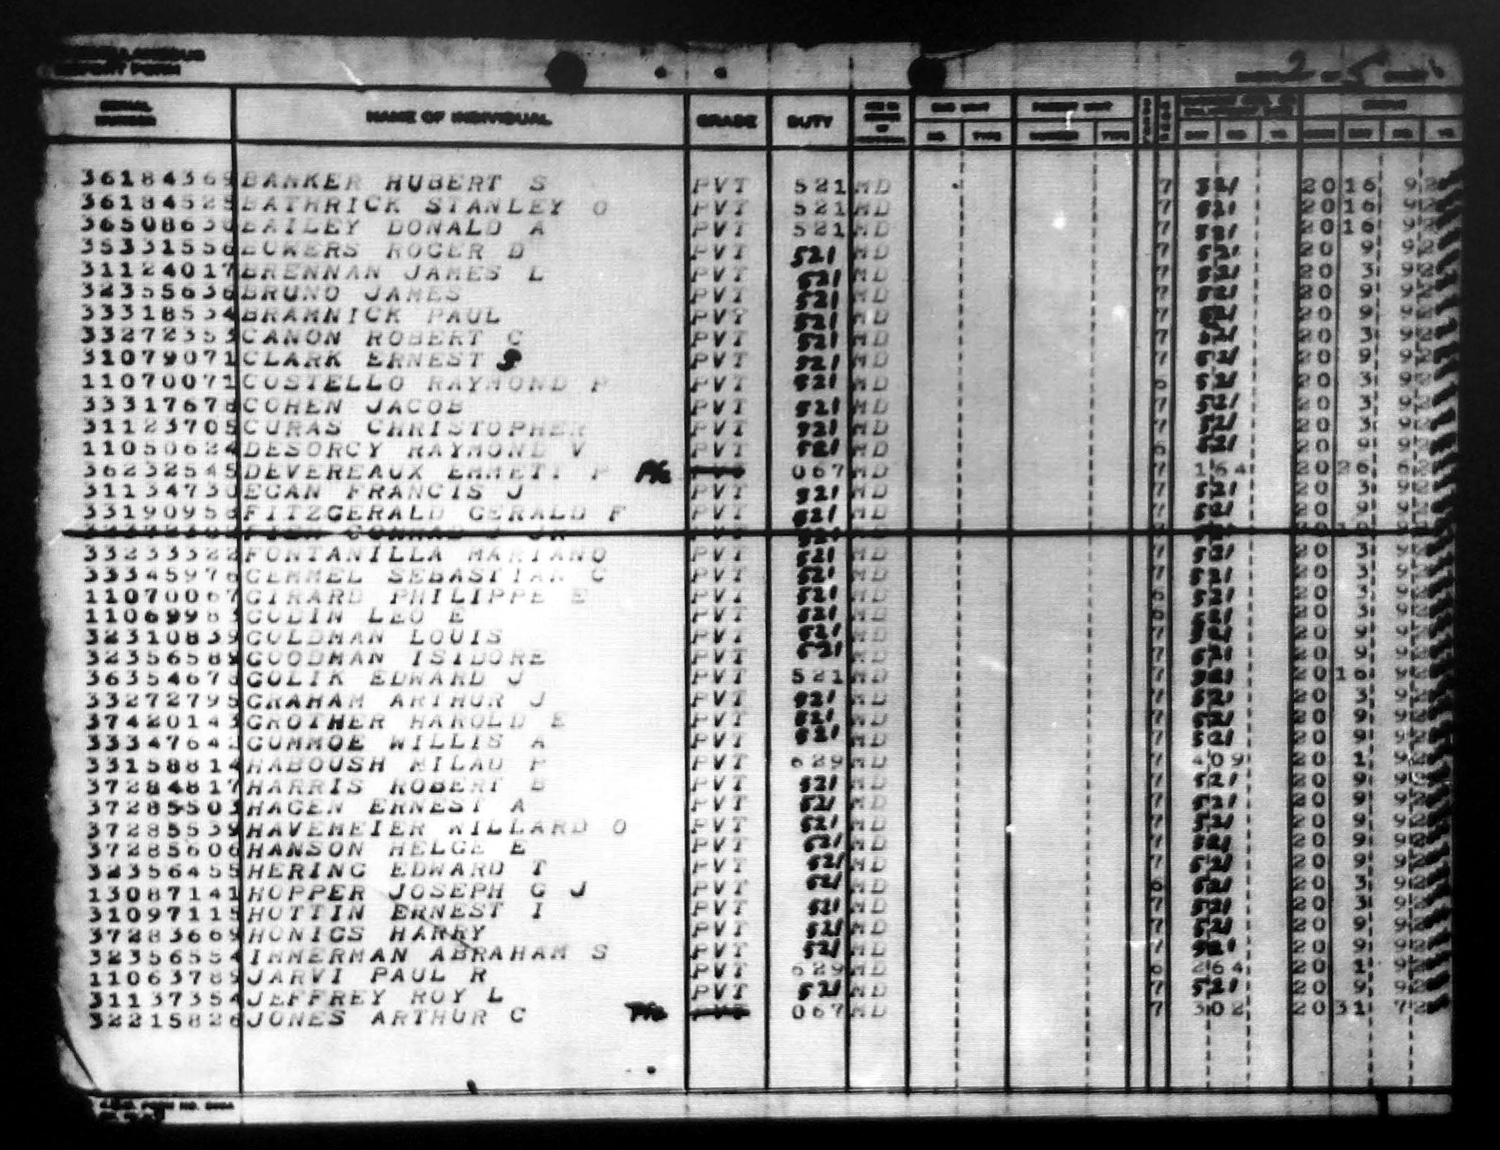 REPORT FORM
2 5
SERIAL NUMBER NAME OF INDIVIDUAL GRADE DUTY NO. TYPE NUMBER TYPE DAY MO. YR. DAY MO. YR.
36184369 BANKER HUBERT S PVT 521 MD 7 521 20 16 9 2
36184525 BATHRICK STANLEY O PVT 521 MD 7 521 20 16 9 2
36508630 BAILEY DONALD A PVT 521 MD 7 521 20 16 9 2
35331556 ECKERS ROGER D PVT 521 MD 7 521 20 9 9 2
31124017 BRENNAN JAMES L PVT 521 MD 7 521 20 3 9 2
32355636 BRUNO JAMES PVT 521 MD 7 521 20 9 9 2
33318534 BRAMNICK PAUL PVT 521 MD 7 521 20 9 9 2
33272353 CANON ROBERT C PVT 521 MD 7 521 20 3 9 2
31079071 CLARK ERNEST PVT 521 MD 7 521 20 9 9 2
11070071 COSTELLO RAYMOND P PVT 521 MD 6 521 20 3 9 2
33317678 COHEN JACOB PVT 521 MD 7 521 20 3 9 2
31123705 CURAS CHRISTOPHER PVT 521 MD 7 521 20 3 9 2
11050624 DESORCY RAYMOND V PVT 521 MD 6 521 20 9 9 2
36232545 DEVEREAUX EMMETT P Pfc 067 MD 7 164 20 26 6 2
31134730 EGAN FRANCIS J PVT 521 MD 7 521 20 3 9 2
33190958 FITZGERALD GERALD F PVT 521 MD 7 521 20 9 9 2
CONRAD JR 521
33233322 FONTANILLA MARIANO PVT 521 MD 7 521 20 3 9 2
33345976 GEMMEL SEBASTIAN C PVT 521 MD 7 521 20 3 9 2
11070067 GIRARD PHILIPPE E PVT 521 MD 6 521 20 3 9 2
1106998 GODIN LEO E PVT 521 MD 6 521 20 3 9 2
32310839 GOLDMAN LOUIS PVT 521 MD 7 521 20 9 9 2
32356589 GOODMAN ISIDORE PVT 521 MD 7 521 20 9 9 2
36354678 GOLIK EDWARD J PVT 521 MD 7 521 20 16 9 2
33272795 GRAHAM ARTHUR J PVT 521 MD 7 521 20 3 9 2
37420143 GROTHER HAROLD E PVT 521 MD 7 521 20 9 9 2
3334764 GUMMOE WILLIS A PVT 521 MD 7 521 20 9 9 2
33158814 HABOUSH MILAD P PVT 629 MD 7 409 20 1 9 2
37284817 HARRIS ROBERT B PVT 521 MD 7 521 20 9 9 2
37285503 HAGEN ERNEST A PVT 521 MD 7 521 20 9 9 2
37285539 HAVEMEIER WILLARD O PVT 521 MD 7 521 20 9 9 2
37285606 HANSON HELGE E PVT 521 MD 7 521 20 9 9 2
32356455 HERING EDWARD T PVT 521 MD 7 521 20 9 9 2
13087141 HOPPER JOSEPH G J PVT 521 MD 6 521 20 3 9 2
31097115 HOTTIN ERNEST I PVT 521 MD 7 521 20 3 9 2
37283669 HONICS HARRY PVT 521 MD 7 521 20 9 9 2
32356554 IMMERMAN ABRAHAM S PVT 521 MD 7 521 20 9 9 2
11063785 JARVI PAUL R PVT 629 MD 6 264 20 1 9 2
31137354 JEFFREY ROY L PVT 521 MD 7 521 20 9 9 2
32215826 JONES ARTHUR C Pfc 067 MD 7 302 20 31 7 2
FORM NO.